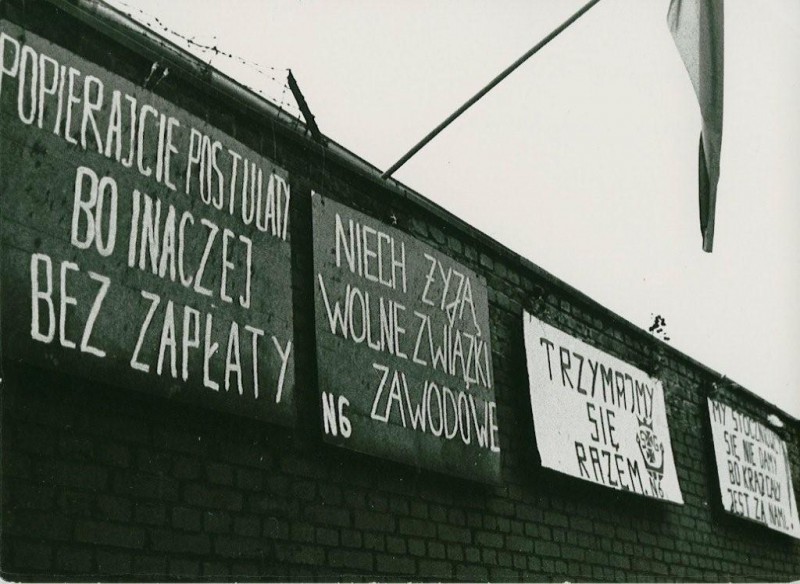 POPIERAJCIE POSTULATY
BO INACZEJ
BEZ ZAPŁATY
NIECH ŻYJĄ
WOLNE ZWIĄZKI
ZAWODOWE
N6
TRZYMAJMY
SIĘ
RAZEM.
N6
MY STOCZNIOWCY
SIĘ NIE DAMY
BO KRAJ CAŁY
JEST ZA NAMI.